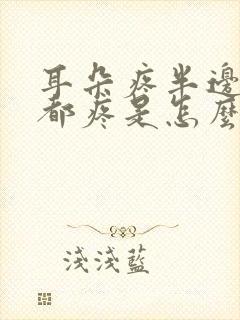 耳朵疼半邊
都疼是怎麼
淺淺藍